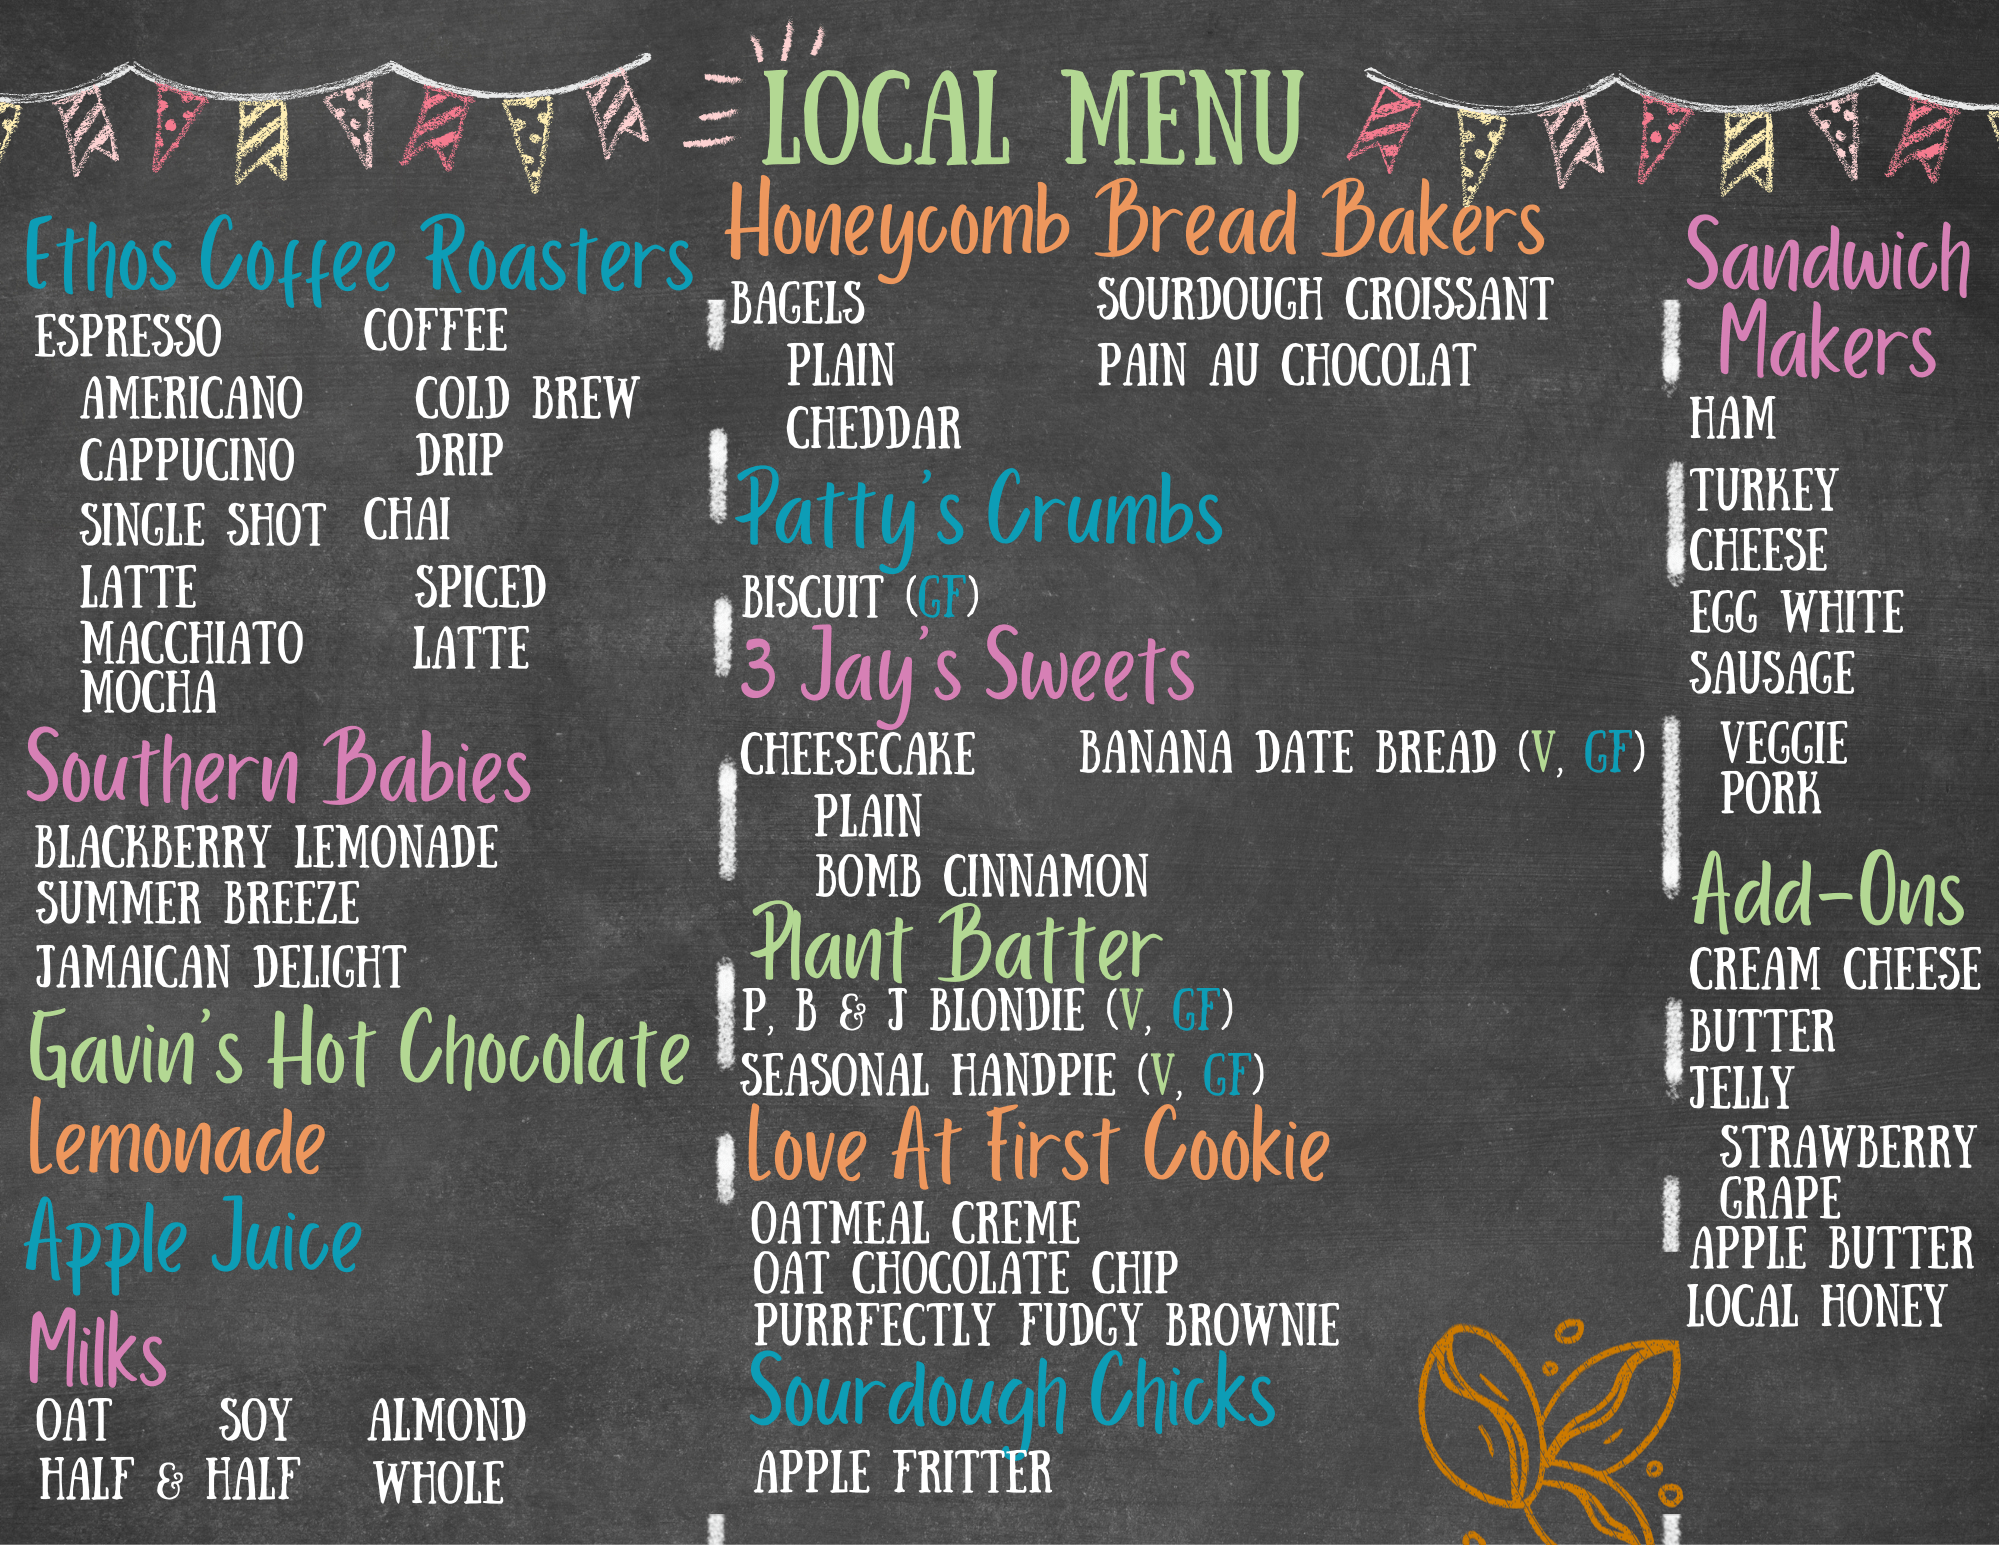 LOCAL MENU
Ethos Coffee Roasters
ESPRESSO
AMERICANO
CAPPUCINO
SINGLE SHOT
LATTE
MACCHIATO
MOCHA
COFFEE
COLD BREW
DRIP
CHAI
SPICED
LATTE
Southern Babies
BLACKBERRY LEMONADE
SUMMER BREEZE
JAMAICAN DELIGHT
Gavin's Hot Chocolate
Lemonade
Apple Juice
Milks
OAT SOY ALMOND
HALF & HALF WHOLE
Honeycomb Bread Bakers
BAGELS
PLAIN
CHEDDAR
SOURDOUGH CROISSANT
PAIN AU CHOCOLAT
Patty's Crumbs
BISCUIT (GF)
3 Jay's Sweets
CHEESECAKE
PLAIN
BOMB CINNAMON
BANANA DATE BREAD (V, GF)
Plant Batter
P, B & J BLONDIE (V, GF)
SEASONAL HANDPIE (V, GF)
Love At First Cookie
OATMEAL CREME
OAT CHOCOLATE CHIP
PURRFECTLY FUDGY BROWNIE
Sourdough Chicks
APPLE FRITTER
Sandwich
Makers
HAM
TURKEY
CHEESE
EGG WHITE
SAUSAGE
VEGGIE
PORK
Add-Ons
CREAM CHEESE
BUTTER
JELLY
STRAWBERRY
GRAPE
APPLE BUTTER
LOCAL HONEY